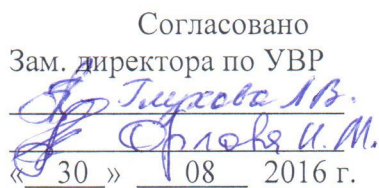 Согласовано
Зам. директора по УВР
Глухова Л.В.
Орлова И.М.
« 30 » 08 2016 г.